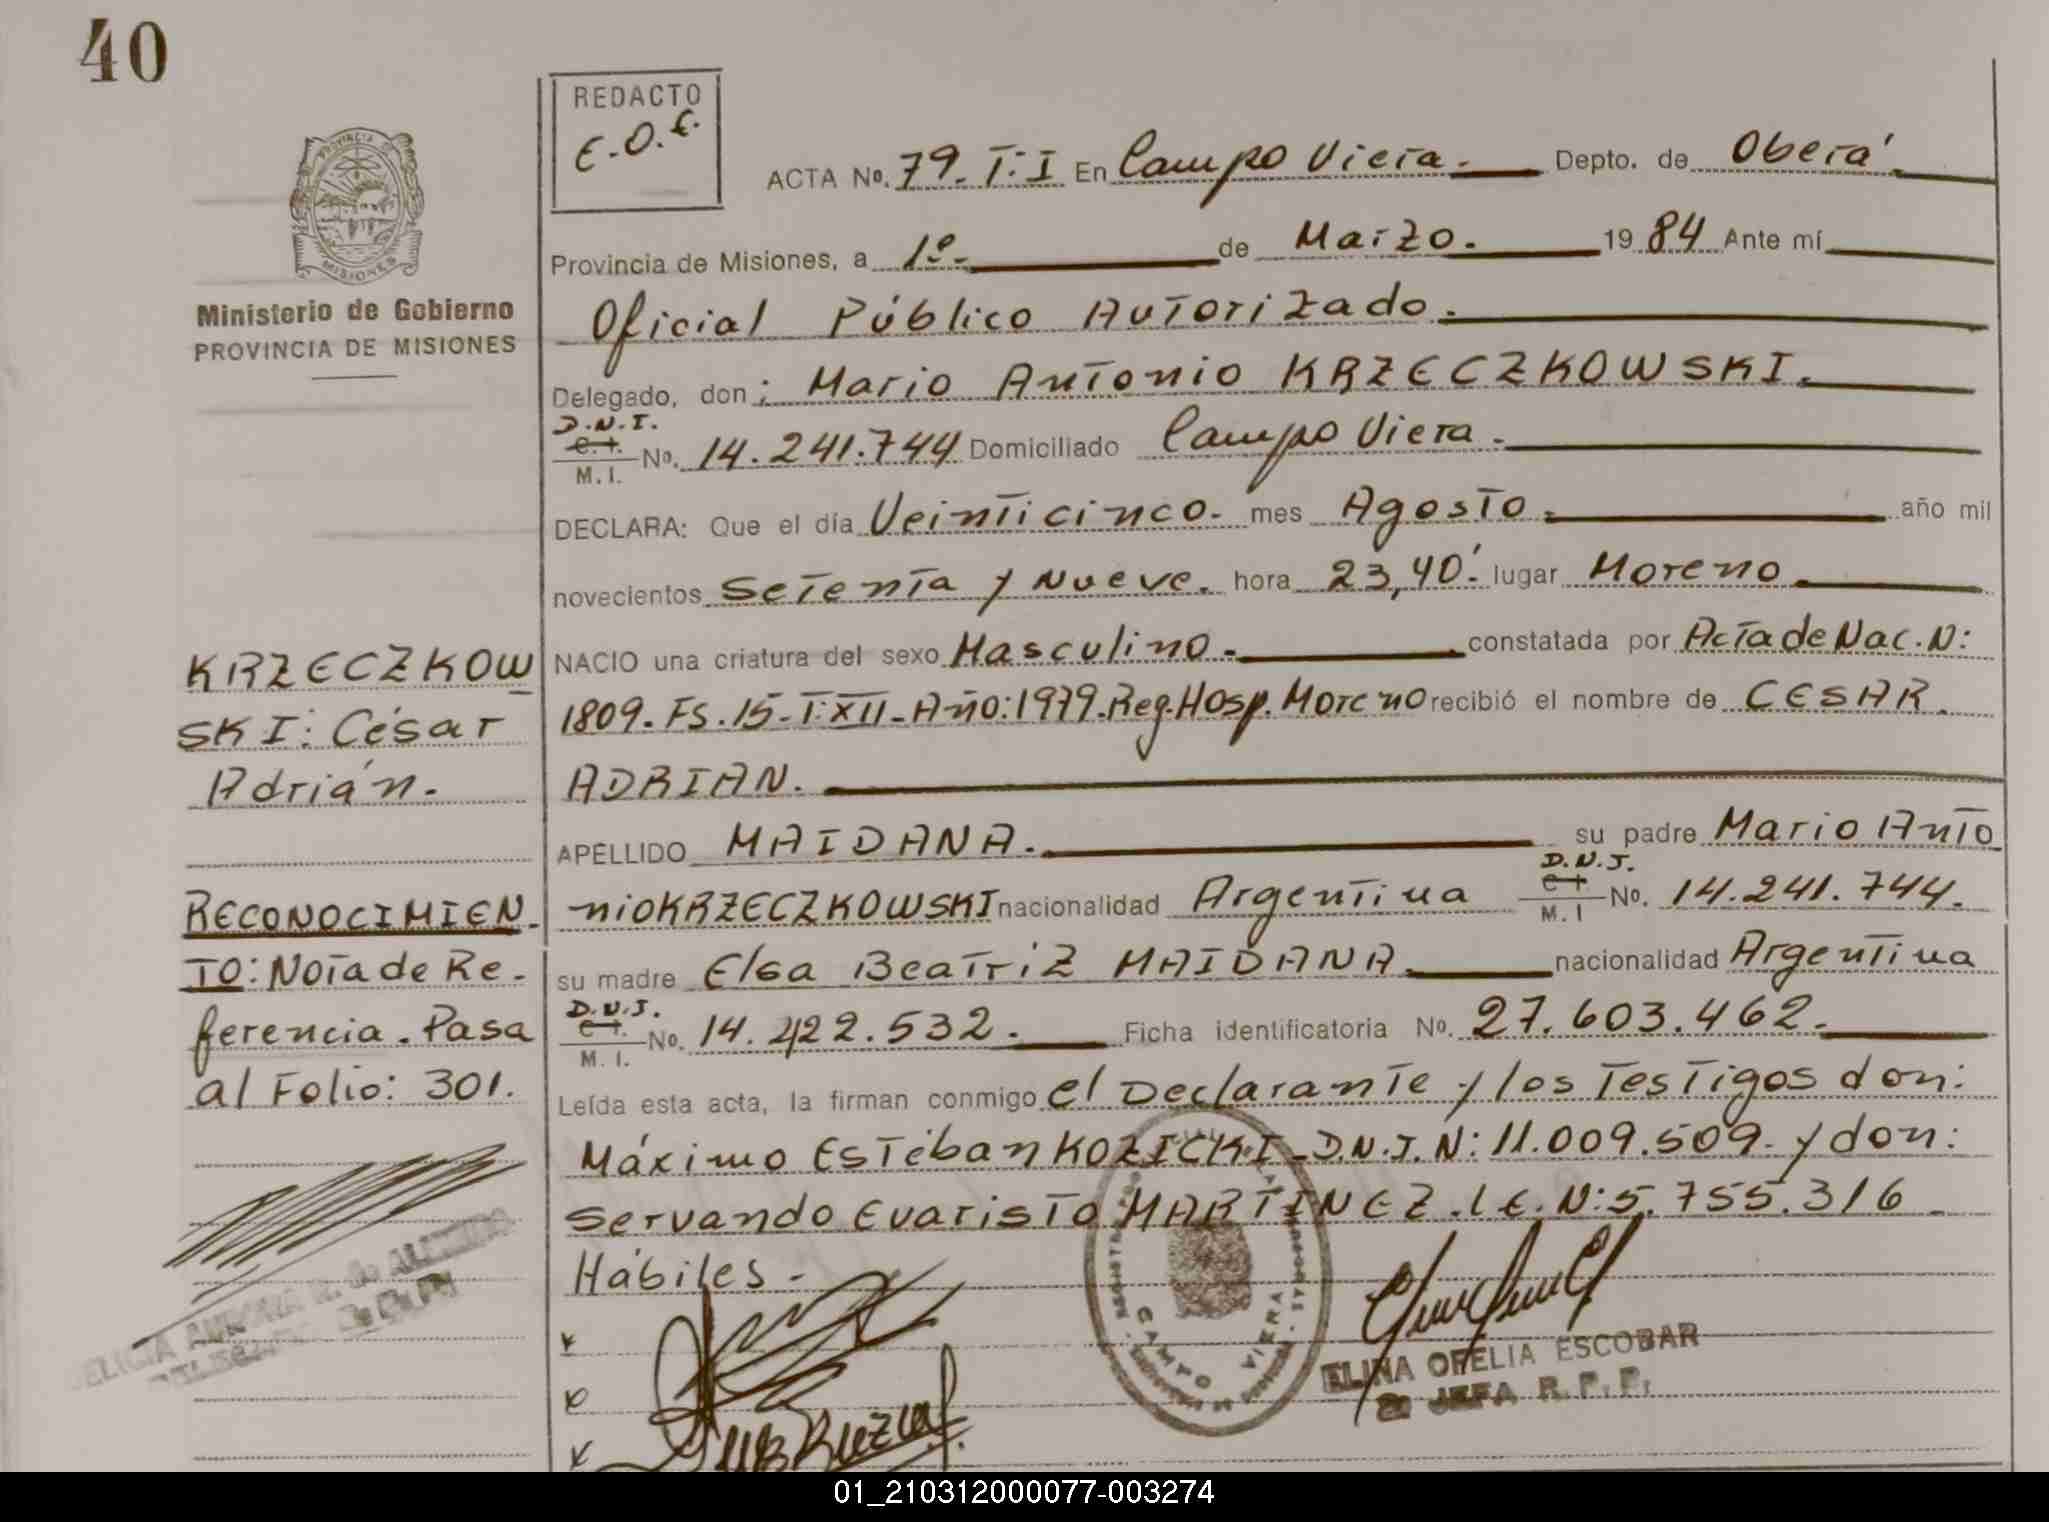 40
REDACTO
E.O.E.
PROVINCIA DE
MISIONES
Ministerio de Gobierno
PROVINCIA DE MISIONES
ACTA Nº. 79. T:I En Campo Viera. Depto. de Oberá
Provincia de Misiones, a 1º. de Marzo. 19 84 Ante mí
Oficial Público Autorizado.
Delegado, don: Mario Antonio KRZECZKOWSKI.
D.N.I.
C.I. M.I. Nº. 14.241.744 Domiciliado Campo Viera.
DECLARA: Que el día Veinticinco. mes Agosto. año mil
novecientos Setenta y Nueve. hora 23,40.' lugar Moreno
NACIO una criatura del sexo Masculino. constatada por Acta de Nac. N:
1809. FS. 15. T:XII. Año: 1979. Reg. Hosp. Moreno recibió el nombre de CESAR
ADRIAN.
APELLIDO MAIDANA. su padre Mario Anto
D.N.I.
nio KRZECZKOWSKI nacionalidad Argentina C.I. M.I Nº. 14.241.744.
su madre Elsa Beatriz MAIDANA. nacionalidad Argentina
D.N.I.
C.I. M.I. Nº. 14.422.532. Ficha identificatoria Nº. 27.603.462.
Leída esta acta, la firman conmigo el Declarante y los Testigos don:
Máximo Estéban KOZICKI. D.N.I. N: 11.009.509. y don:
Servando Evaristo MARTINEZ. L.E. N: 5.755.316.
Hábiles.
KRZECZKOW
SKI: César
Adrián.
RECONOCIMIEN
TO: Nota de Re-
ferencia. Pasa
al Folio: 301.
CAMPO VIERA
ELINA OFELIA ESCOBAR
JEFA R. P. P.
01_210312000077-003274